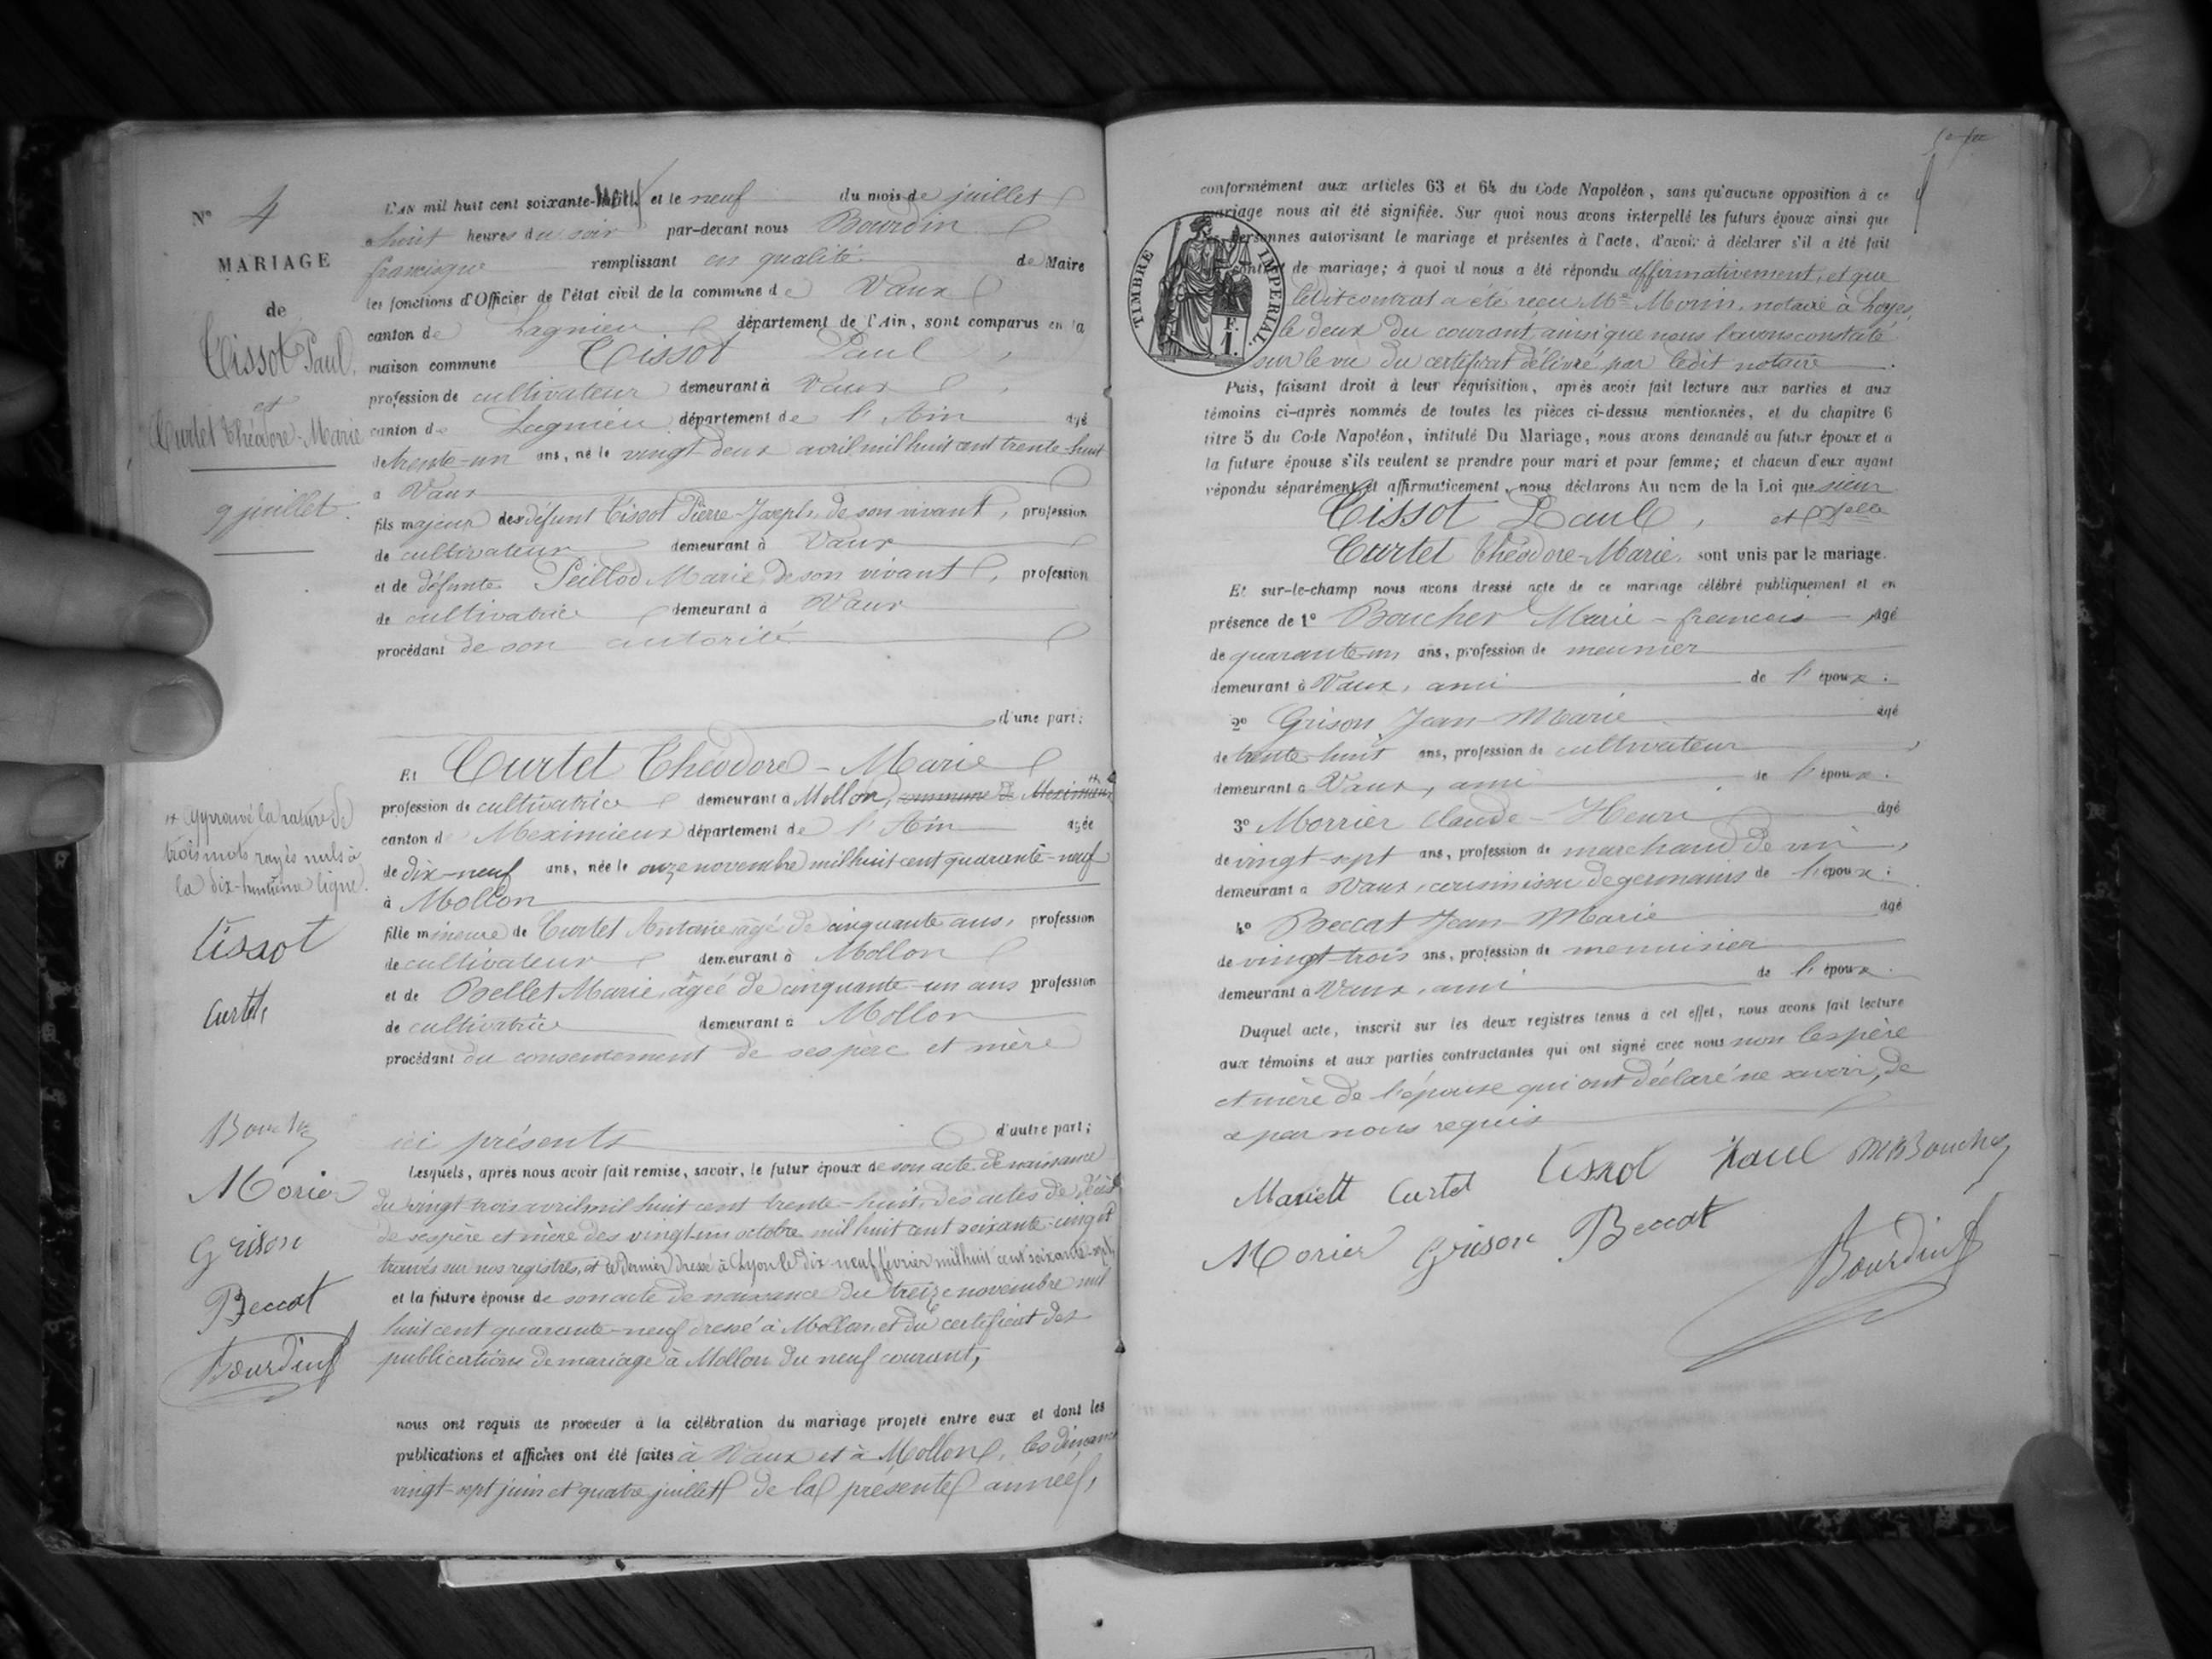 N° 4
MARIAGE
de
Tissot Paul,
et
Curtet Théodore-Marie
9 juillet.
L'AN mil huit cent soixante-neuf et le neuf du mois de juillet
à huit heures du soir par-devant nous Bourdin
francisque remplissant en qualité de Maire
les fonctions d'Officier de l'état civil de la commune de Vaux
canton de Lagnieu département de l'Ain, sont comparus en la
maison commune Tissot Paul,
profession de cultivateur demeurant à Vaux
canton de Lagnieu département de l'Ain âgé
de trente-un ans, né le vingt deux avril mil huit cent trente-huit
à Vaux
fils majeur des défunt Tissot Pierre-Joseph, de son vivant, profession
de cultivateur demeurant à Vaux
et de défunte Peillod Marie, de son vivant, profession
de cultivatrice demeurant à Vaux
procédant de son autorité
d'une part;
Et Curtet Théodore-Marie
profession de cultivatrice demeurant à Mollon, commune de Meximieux
canton de Meximieux département de l'Ain âgée
de dix-neuf ans, née le onze novembre mil huit cent quarante-neuf
à Mollon
fille mineure de Curtet Antoine, âgé de cinquante ans, profession
de cultivateur demeurant à Mollon
et de Bellet Marie, âgée de cinquante-un ans profession
de cultivatrice demeurant à Mollon
procédant du consentement de ses père et mère
ici présents d'autre part;
Lesquels, après nous avoir fait remise, savoir, le futur époux de son acte de naissance
du vingt-trois avril mil huit cent trente-huit, des actes de décès
de ses père et mère des vingt-un octobre mil huit cent soixante-cinq et
trouvés sur nos registres, et le dernier dressé à Lyon le dix-neuf février mil huit cent soixante-sept,
et la future épouse de son acte de naissance du treize novembre mil
huit cent quarante-neuf dressé à Mollon et du certificat des
publications de mariage à Mollon du neuf courant,
nous ont requis de procéder à la célébration du mariage projeté entre eux et dont les
publications et affiches ont été faites à Vaux et à Mollon, les dimanches
vingt-sept juin et quatre juillet de la présente année,
+ approuvé la rature de
trois mots rayés nuls à
la dix-huitième ligne.
Tissot
Curtet
Boucher
Morier
Grison
Beccat
Bourdin
conformément aux articles 63 et 64 du Code Napoléon, sans qu'aucune opposition à ce
mariage nous ait été signifiée. Sur quoi nous avons interpellé les futurs époux ainsi que
personnes autorisant le mariage et présentes à l'acte, d'avoir à déclarer s'il a été fait
contrat de mariage; à quoi il nous a été répondu affirmativement, et que
ledit contrat a été reçu Me Morin, notaire à Loyes,
le deux du courant, ainsi que nous l'avons constaté
sur le vu du certificat délivré par ledit notaire.
TIMBRE IMPERIAL.
F.
1.
Puis, faisant droit à leur réquisition, après avoir fait lecture aux parties et aux
témoins ci-après nommés de toutes les pièces ci-dessus mentionnées, et du chapitre 6
titre 5 du Code Napoléon, intitulé Du Mariage, nous avons demandé au futur époux et à
la future épouse s'ils veulent se prendre pour mari et pour femme; et chacun d'eux ayant
répondu séparément et affirmativement, nous déclarons Au nom de la Loi que sieur
Tissot Paul, et Delle
Curtet Théodore-Marie, sont unis par le mariage.
Et sur-le-champ nous avons dressé acte de ce mariage célébré publiquement et en
présence de 1° Boucher Marie-françois âgé
de quarante-un ans, profession de meunier
demeurant à Vaux, ami de l'époux;
2° Grison Jean-Marie âgé
de trente-huit ans, profession de cultivateur,
demeurant à Vaux, ami de l'époux;
3° Morrier Claude-Henri âgé
de vingt-sept ans, profession de marchand de vin,
demeurant à Vaux, cousin issu de germains de l'époux;
4° Beccat Jean-Marie âgé
de vingt-trois ans, profession de menuisier
demeurant à Vaux, ami de l'époux.
Duquel acte, inscrit sur les deux registres tenus à cet effet, nous avons fait lecture
aux témoins et aux parties contractantes qui ont signé avec nous non les père
et mère de l'épouse qui ont déclaré ne savoir, de
ce par nous requis
Mariett Curtet Tissot Paul MBoucher
Morier Grison Beccat
Bourdin